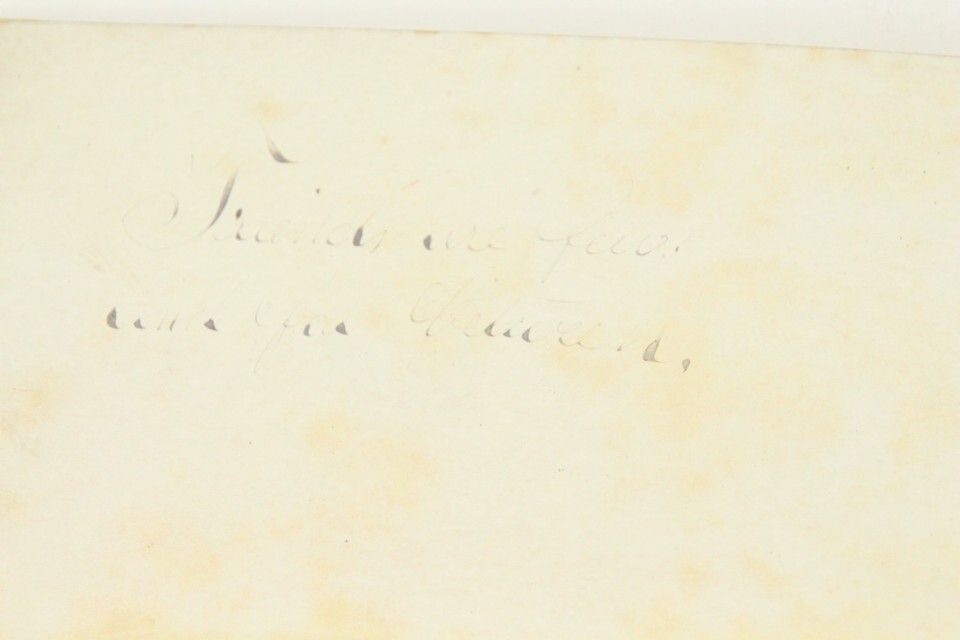 Friends are few
and far between.